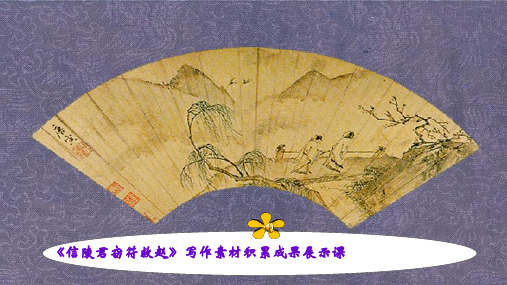 《信陵君窃符救赵》写作素材积累成果展示课